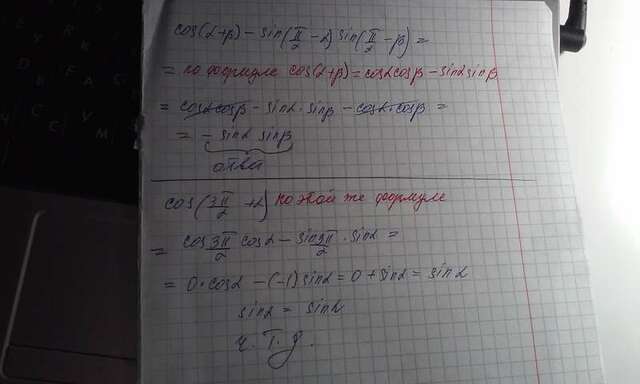 cos(α+β) − sin(π/2 − α) sin(π/2 − β) =
= по формуле cos(α+β) = cosα cosβ − sinα sinβ
= cosα cosβ − sinα · sinβ − cosα · cosβ =
= − sinα sinβ
ответ
cos(3π/2 + α) по этой же формуле
= cos 3π/2 cosα − sin 3π/2 · sinα =
= 0 · cosα − (−1) sinα = 0 + sinα = sinα
sinα = sinα
ч. т. д.